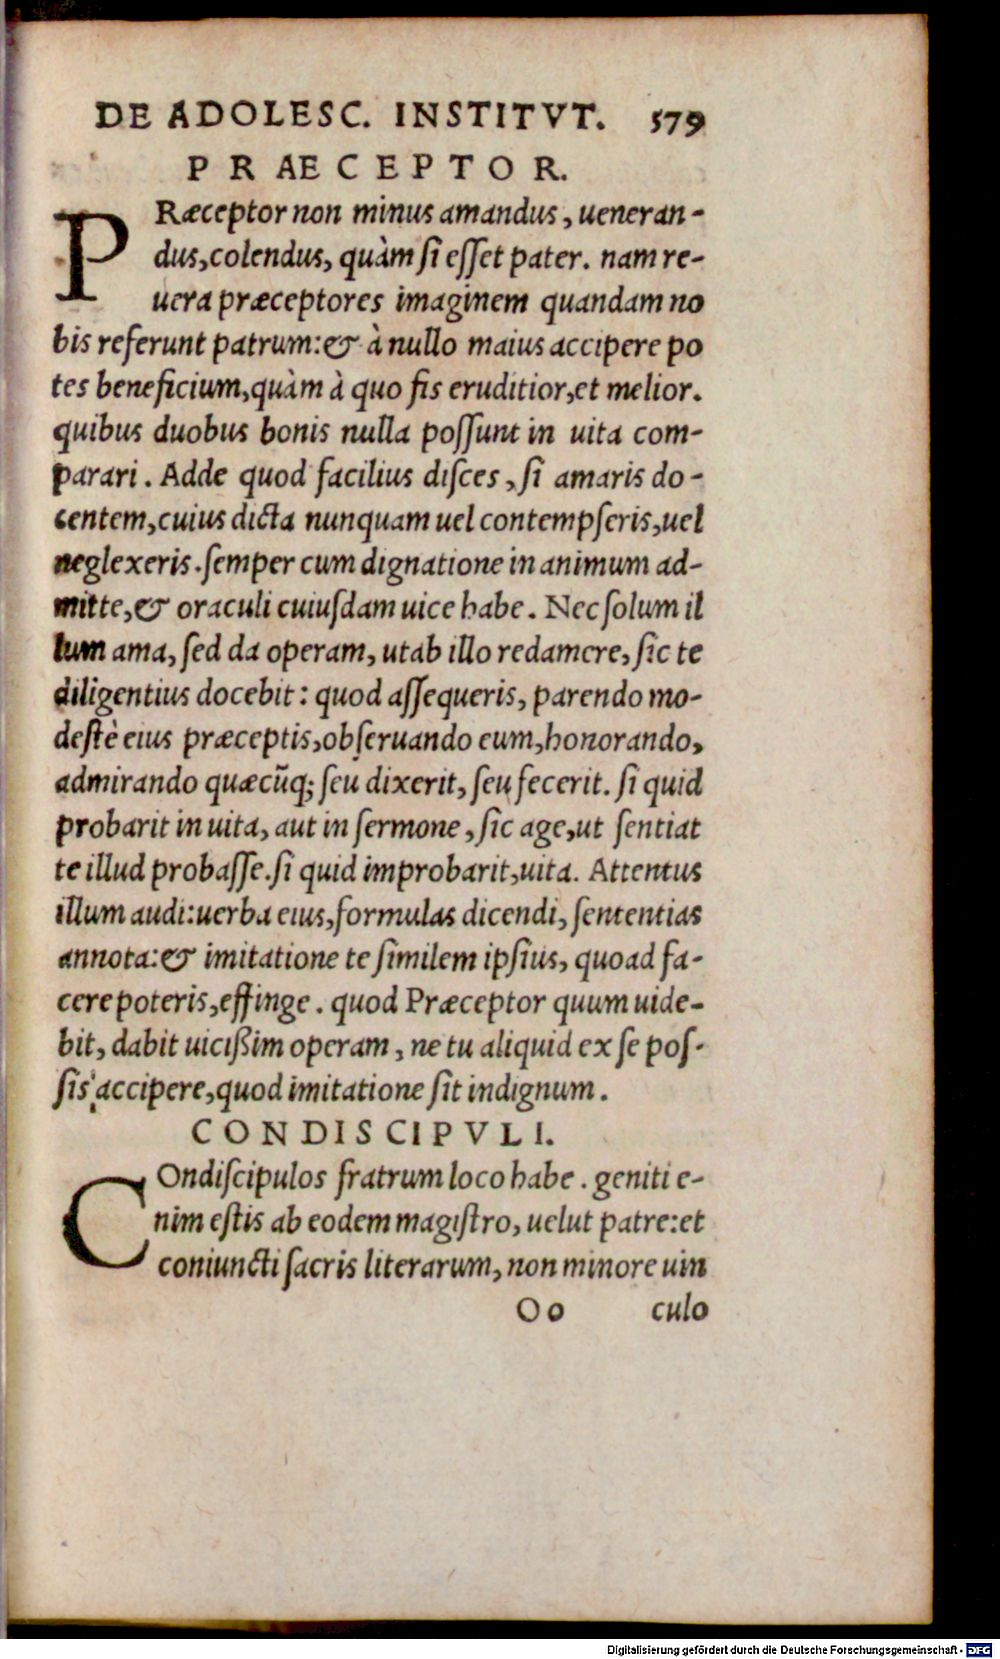 DE ADOLESC. INSTITVT. 579
PRAECEPTOR.
PRæceptor non minus amandus, ueneran-
dus, colendus, quàm si esset pater. nam re-
uera præceptores imaginem quandam no
bis referunt patrum: & à nullo maius accipere po
tes beneficium, quàm à quo fis eruditior, et melior.
quibus duobus bonis nulla possunt in uita com-
parari. Adde quod facilius disces, si amaris do-
centem, cuius dicta nunquam uel contempseris, uel
neglexeris. semper cum dignatione in animum ad-
mitte, & oraculi cuiusdam uice habe. Nec solum il
lum ama, sed da operam, utab illo redamere, sic te
diligentius docebit: quod assequeris, parendo mo-
destè eius præceptis, obseruando eum, honorando,
admirando quæcũq; seu dixerit, seu fecerit. si quid
probarit in uita, aut in sermone, sic age, ut sentiat
te illud probasse. si quid improbarit, uita. Attentus
illum audi: uerba eius, formulas dicendi, sententias
annota: & imitatione te similem ipsius, quoad fa-
cere poteris, effinge. quod Præceptor quum uide-
bit, dabit uicißim operam, ne tu aliquid ex se pos-
sis accipere, quod imitatione sit indignum.
CONDISCIPVLI.
COndiscipulos fratrum loco habe. geniti e-
nim estis ab eodem magistro, uelut patre: et
coniuncti sacris literarum, non minore uin
Oo culo
Digitalisierung gefördert durch die Deutsche Forschungsgemeinschaft - DFG